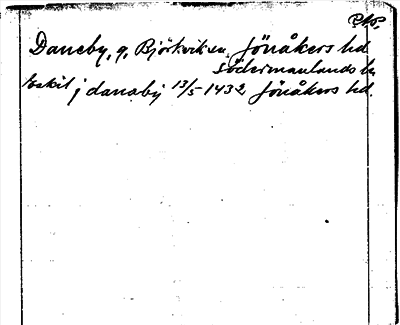 Daneby, g, Björkviks sn, Jönåkers hd
Södermanlands
Eskil j danaby 13/5-1432 Jönåkers hd.